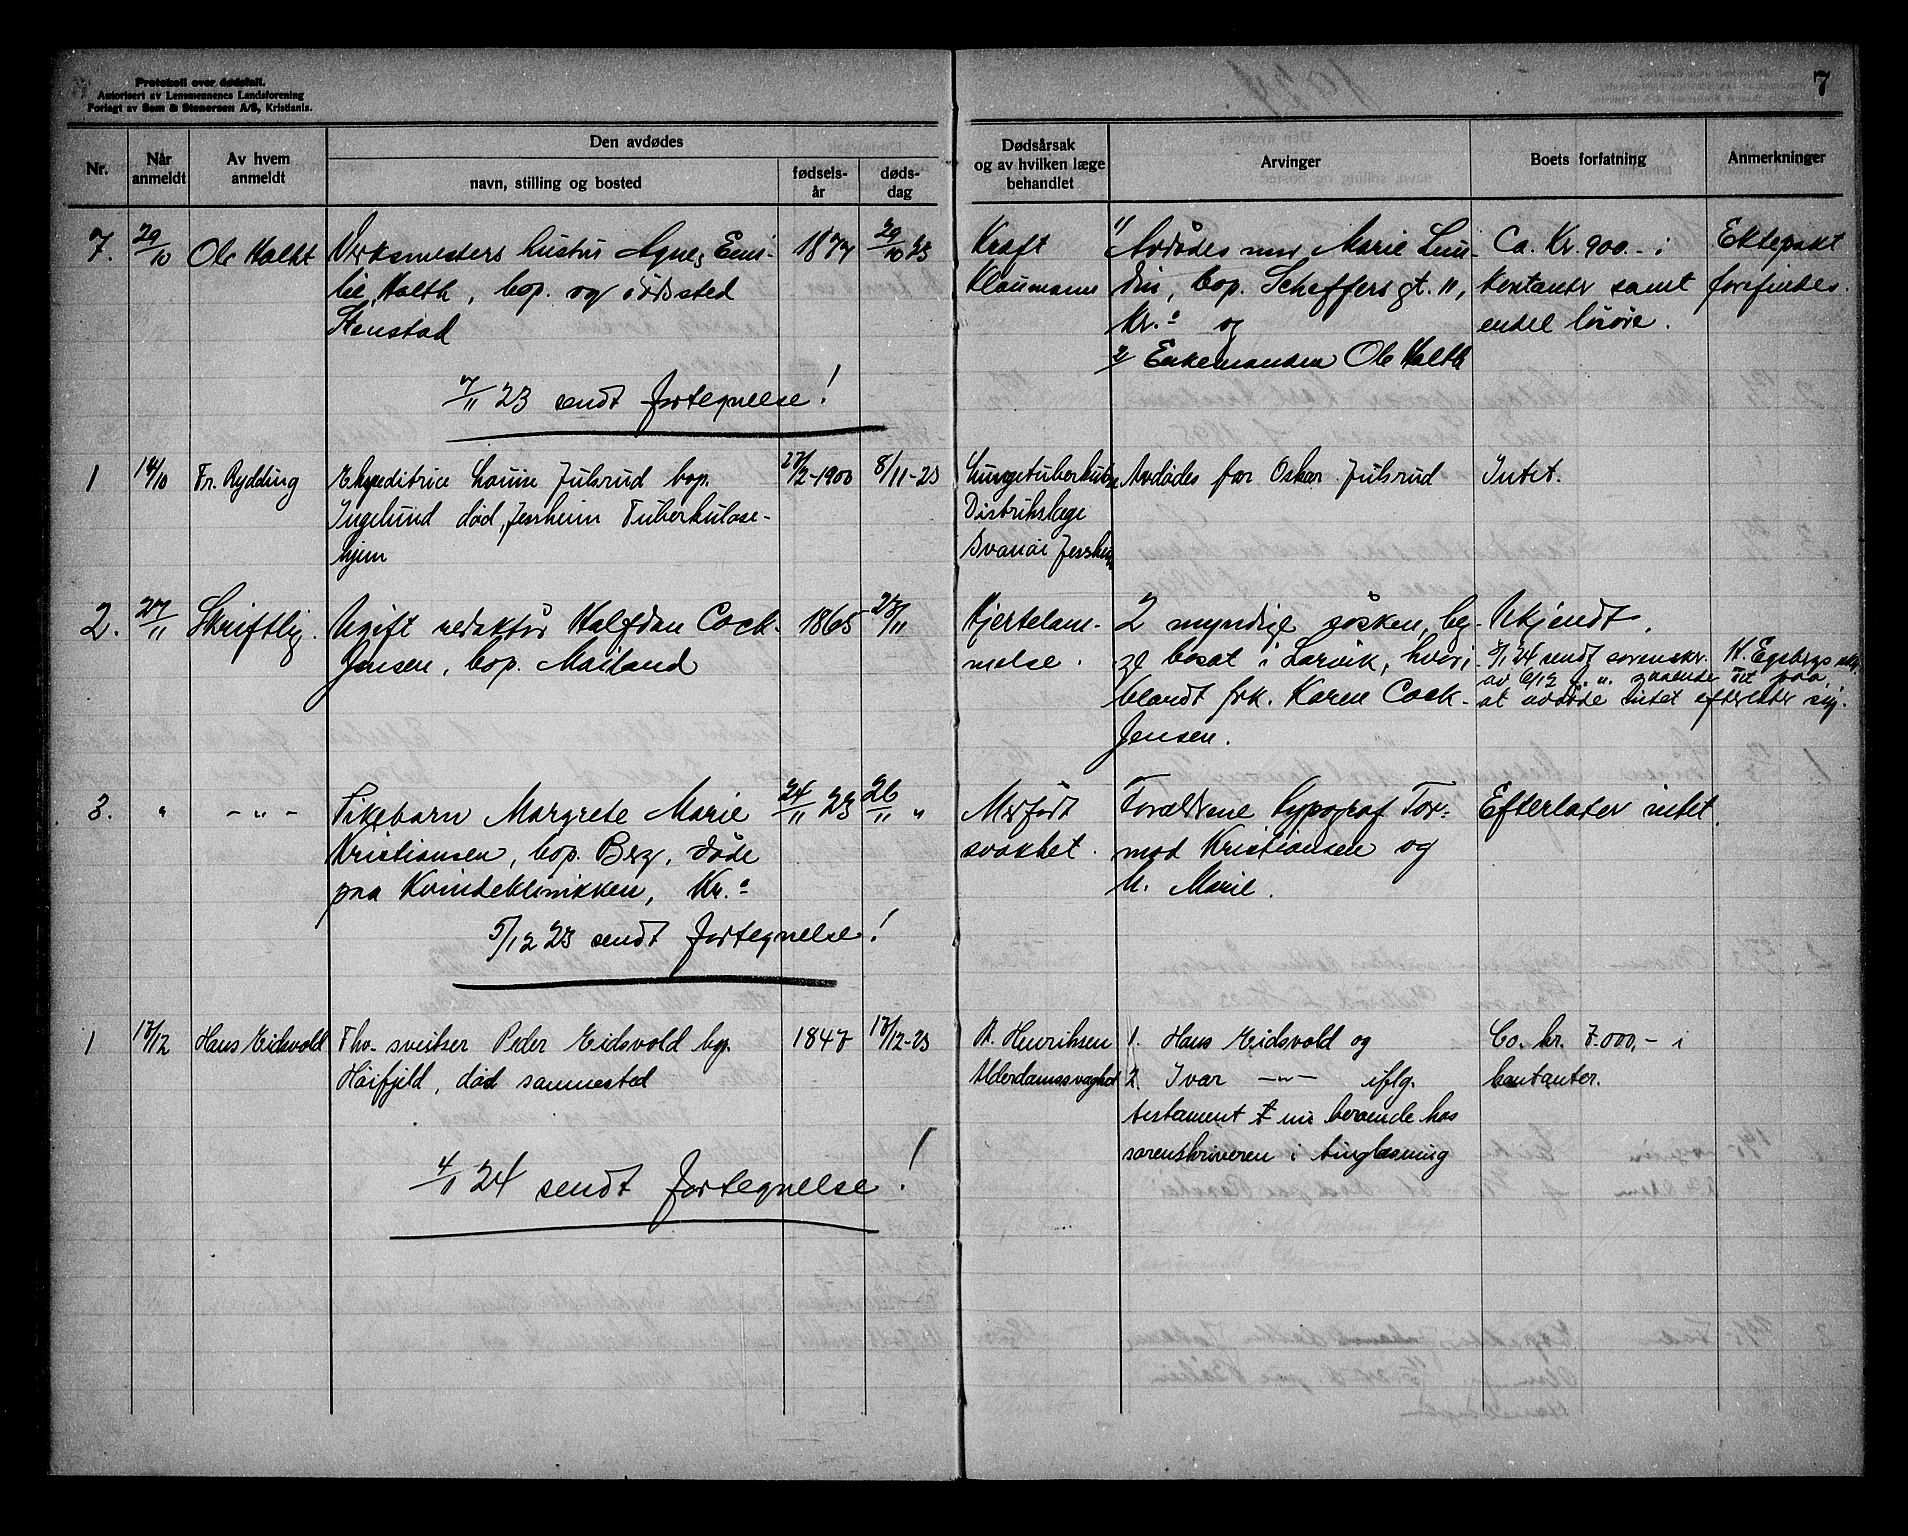 Protokoll over dødsfall.
Autorisert av Lensmennenes Landsforening
Forlagt av Sem & Stenersen A/S, Kristiania.
7
Nr.
Når anmeldt
Av hvem anmeldt
Den avdødes
navn, stilling og bosted
fødselsår
dødsdag
Dødsårsak og av hvilken læge behandlet
Arvinger
Boets forfatning
Anmerkninger
7. 29/10 Ole Holth Verksmesters hustru Agnes Emi-
lie Holth, bop. og død sted
Stenstad
1877 29/10 23
Kraft
Klaumann
1) Avdødes mor Marie Lun-
din, bop. Scheffersgt. 11,
Kr.a og
2) Enkemanden Ole Holth
Ca. Kr. 900.- i
kontanter samt
endel løsøre.
Ektepakt
forefindes.
7/11 23 sendt fortegnelse!
1 14/10 Fr. Rydding Ekspeditrice Louise Julsrud bop.
Ingelund død, Jessheim Tuberkulose-
hjem
27/2-1900 8/11-23
Lungetuberkulose
Distriktslæge
Svanøe Jessheim
Avdødes far Oskar Julsrud
Intet.
2. 27/11 Skriftlig. Ugift redaktør Halfdan Cock-
Jensen, bop. Mailand
1865 23/11
Hjertelam-
melse.
2 myndige søsken, beg-
ge bosat i Larvik, hvori-
blandt frk. Karen Cock-
Jensen.
Ukjendt.
5/1 24 sendt sorenskr. H. Egebergs
av 6/12 f. a. gaaende ut paa,
at avdøde intet efterlater sig.
3. " - " - Pikebarn Margrete Marie
Kristiansen, bop. Berg, døde
paa Kvindeklinikken, Kr.a
24/11 23 26/11 "
Medfødt
svakhet.
Forældrene typograf Tor-
mod Kristiansen og
h. Marie.
Efterlater intet.
5/12 23 sendt fortegnelse!
1 17/12 Hans Eidsvold Fhv. sveitser Peder Eidsvold bop.
Høifjeld, død sammested
1847 17/12-23
A. Henriksen
Alderdomssvaghet
1. Hans Eidsvold og
2. Ivar - " - iflg.
testament nu beroende hos
sorenskriveren i tinglæsning
Ca. kr. 7.000,- i
kontanter.
4/1 24 sendt fortegnelse!